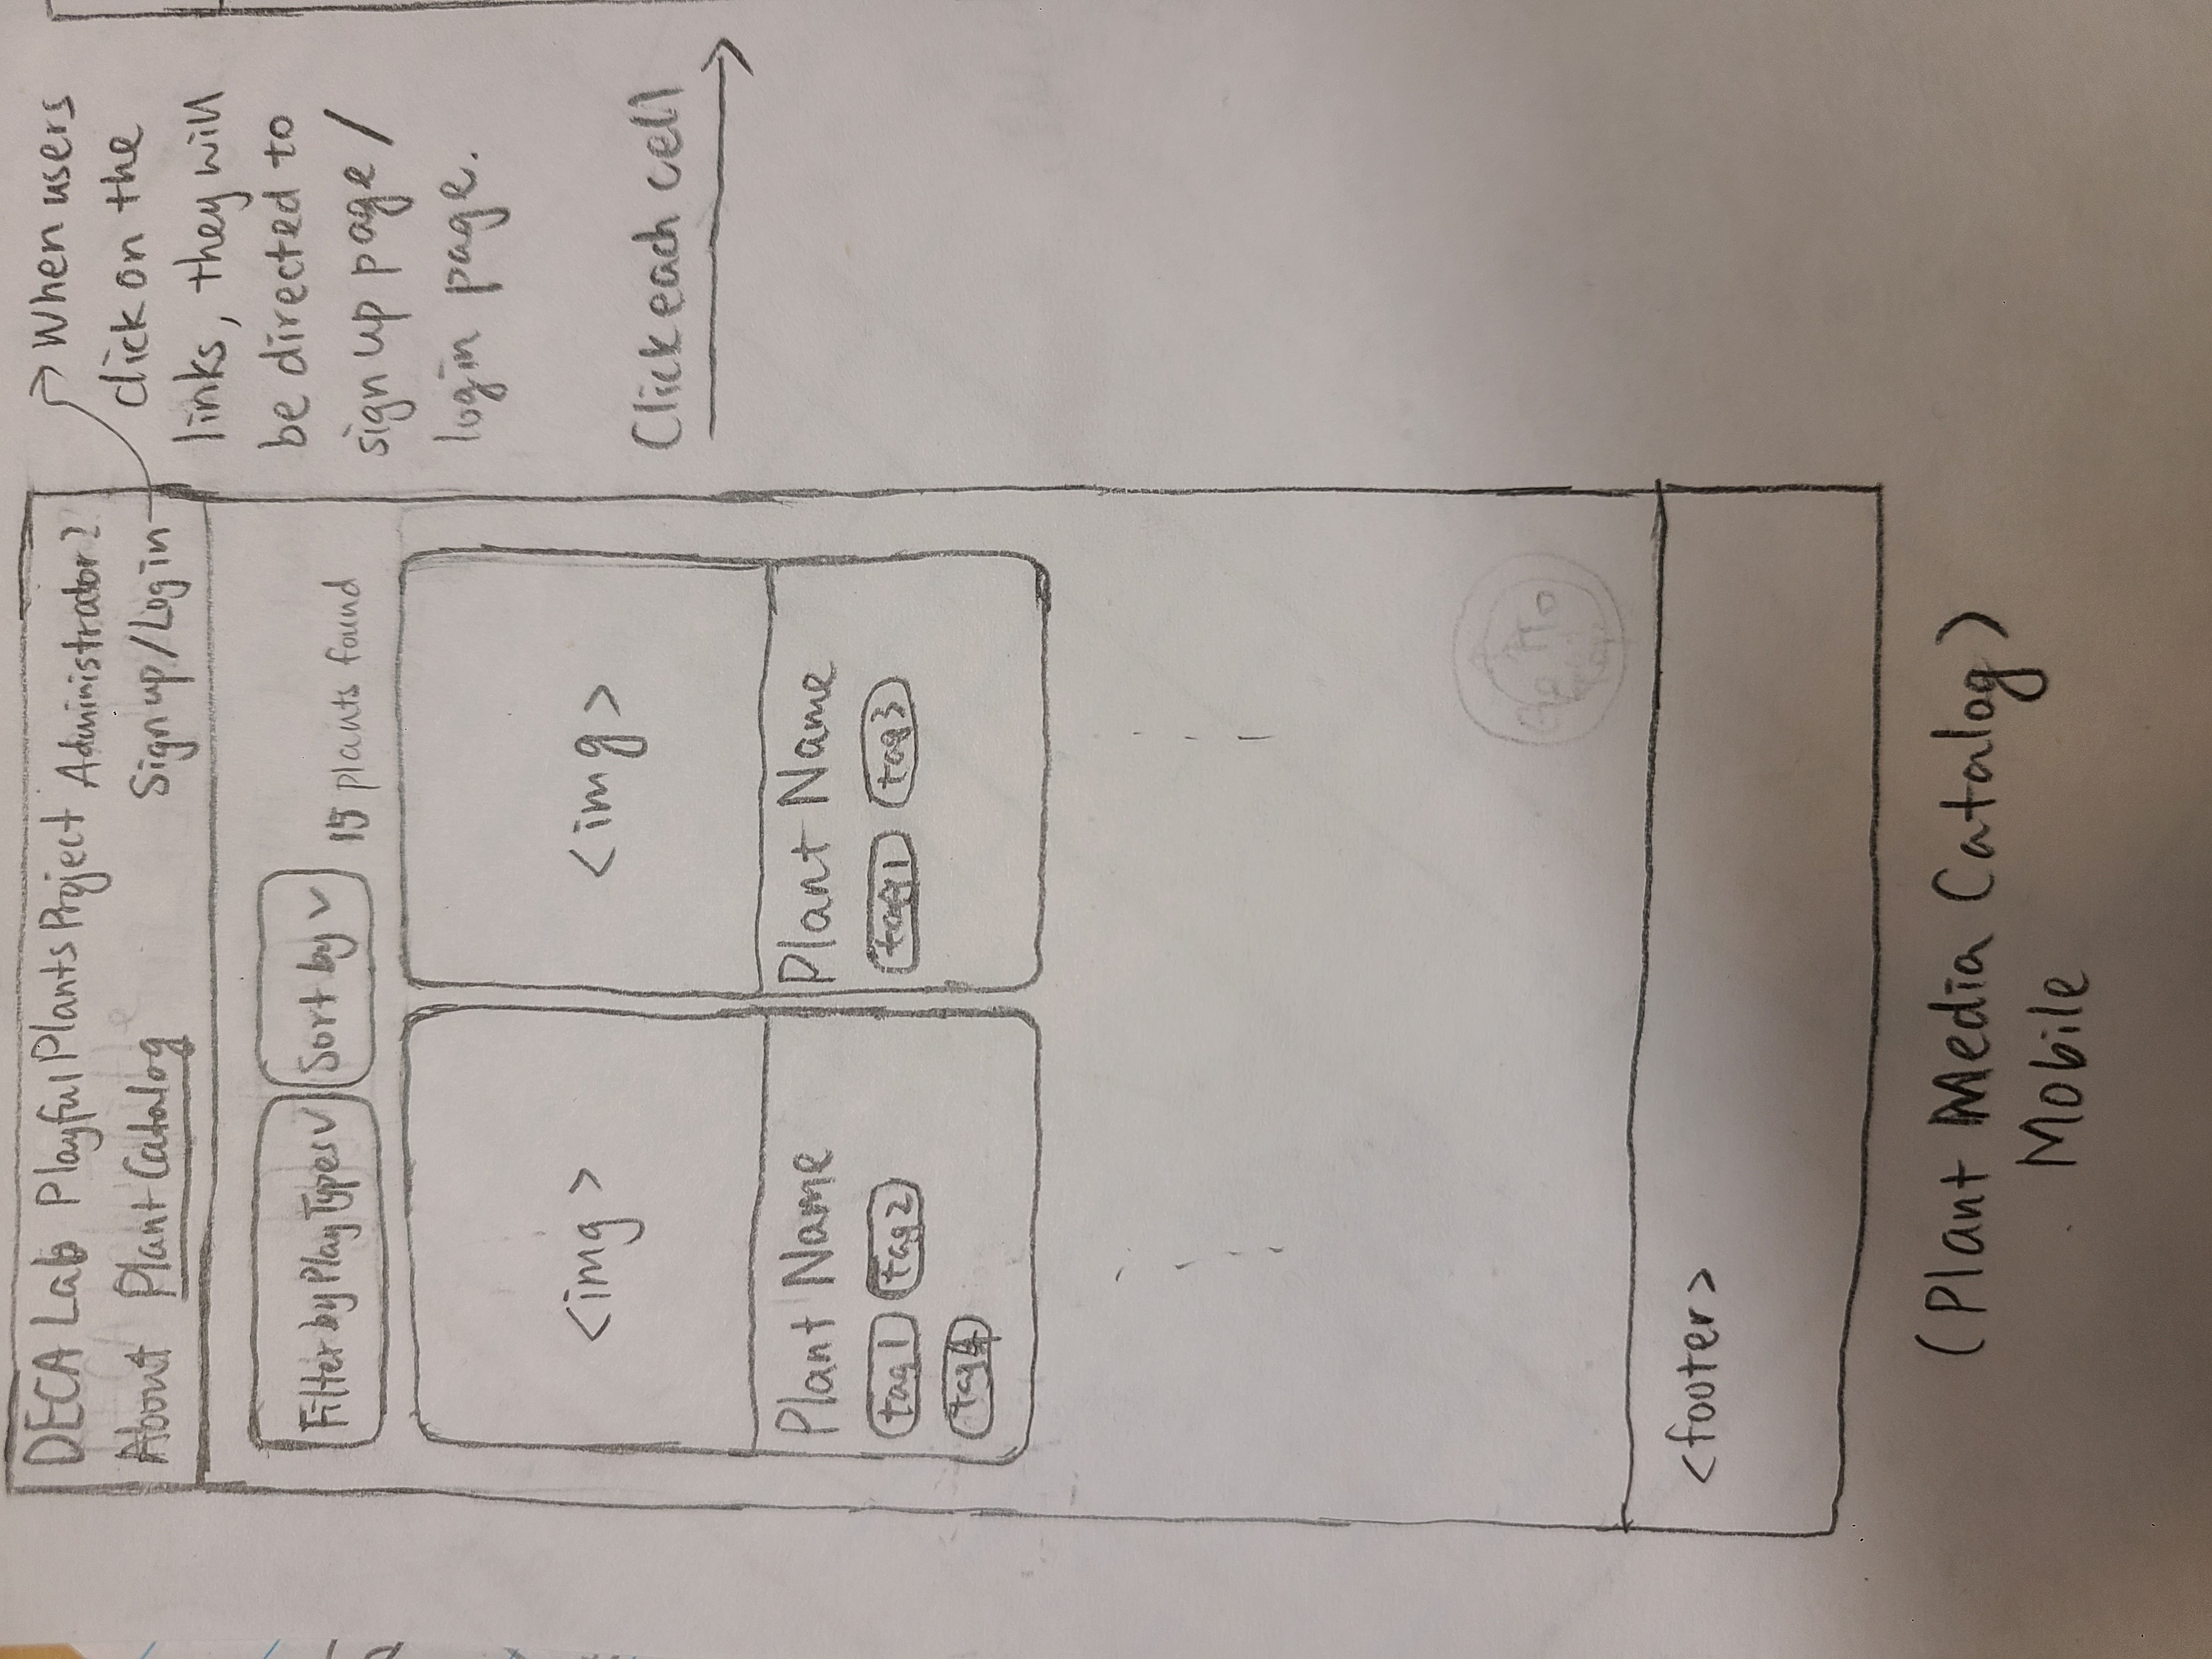 DECA Lab Playful Plants Project Administrator?
About Plant Catalog Sign up/Log in
When users
click on the
links, they will
be directed to
sign up page/
login page.
Filter by Play Types ∨ Sort by ∨ 15 plants found
<img> <img>
Click each cell
Plant Name Plant Name
tag1 tag2 tag1 tag3
tag4
Go To
Top
<footer>
(Plant Media Catalog)
Mobile